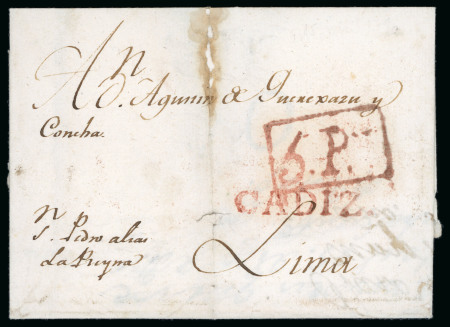 A
D.ⁿ Agustin de Querexazu y
Concha.
6.P.
CADIZ.
N.
S. Pedro alias
La Reyna
Lima